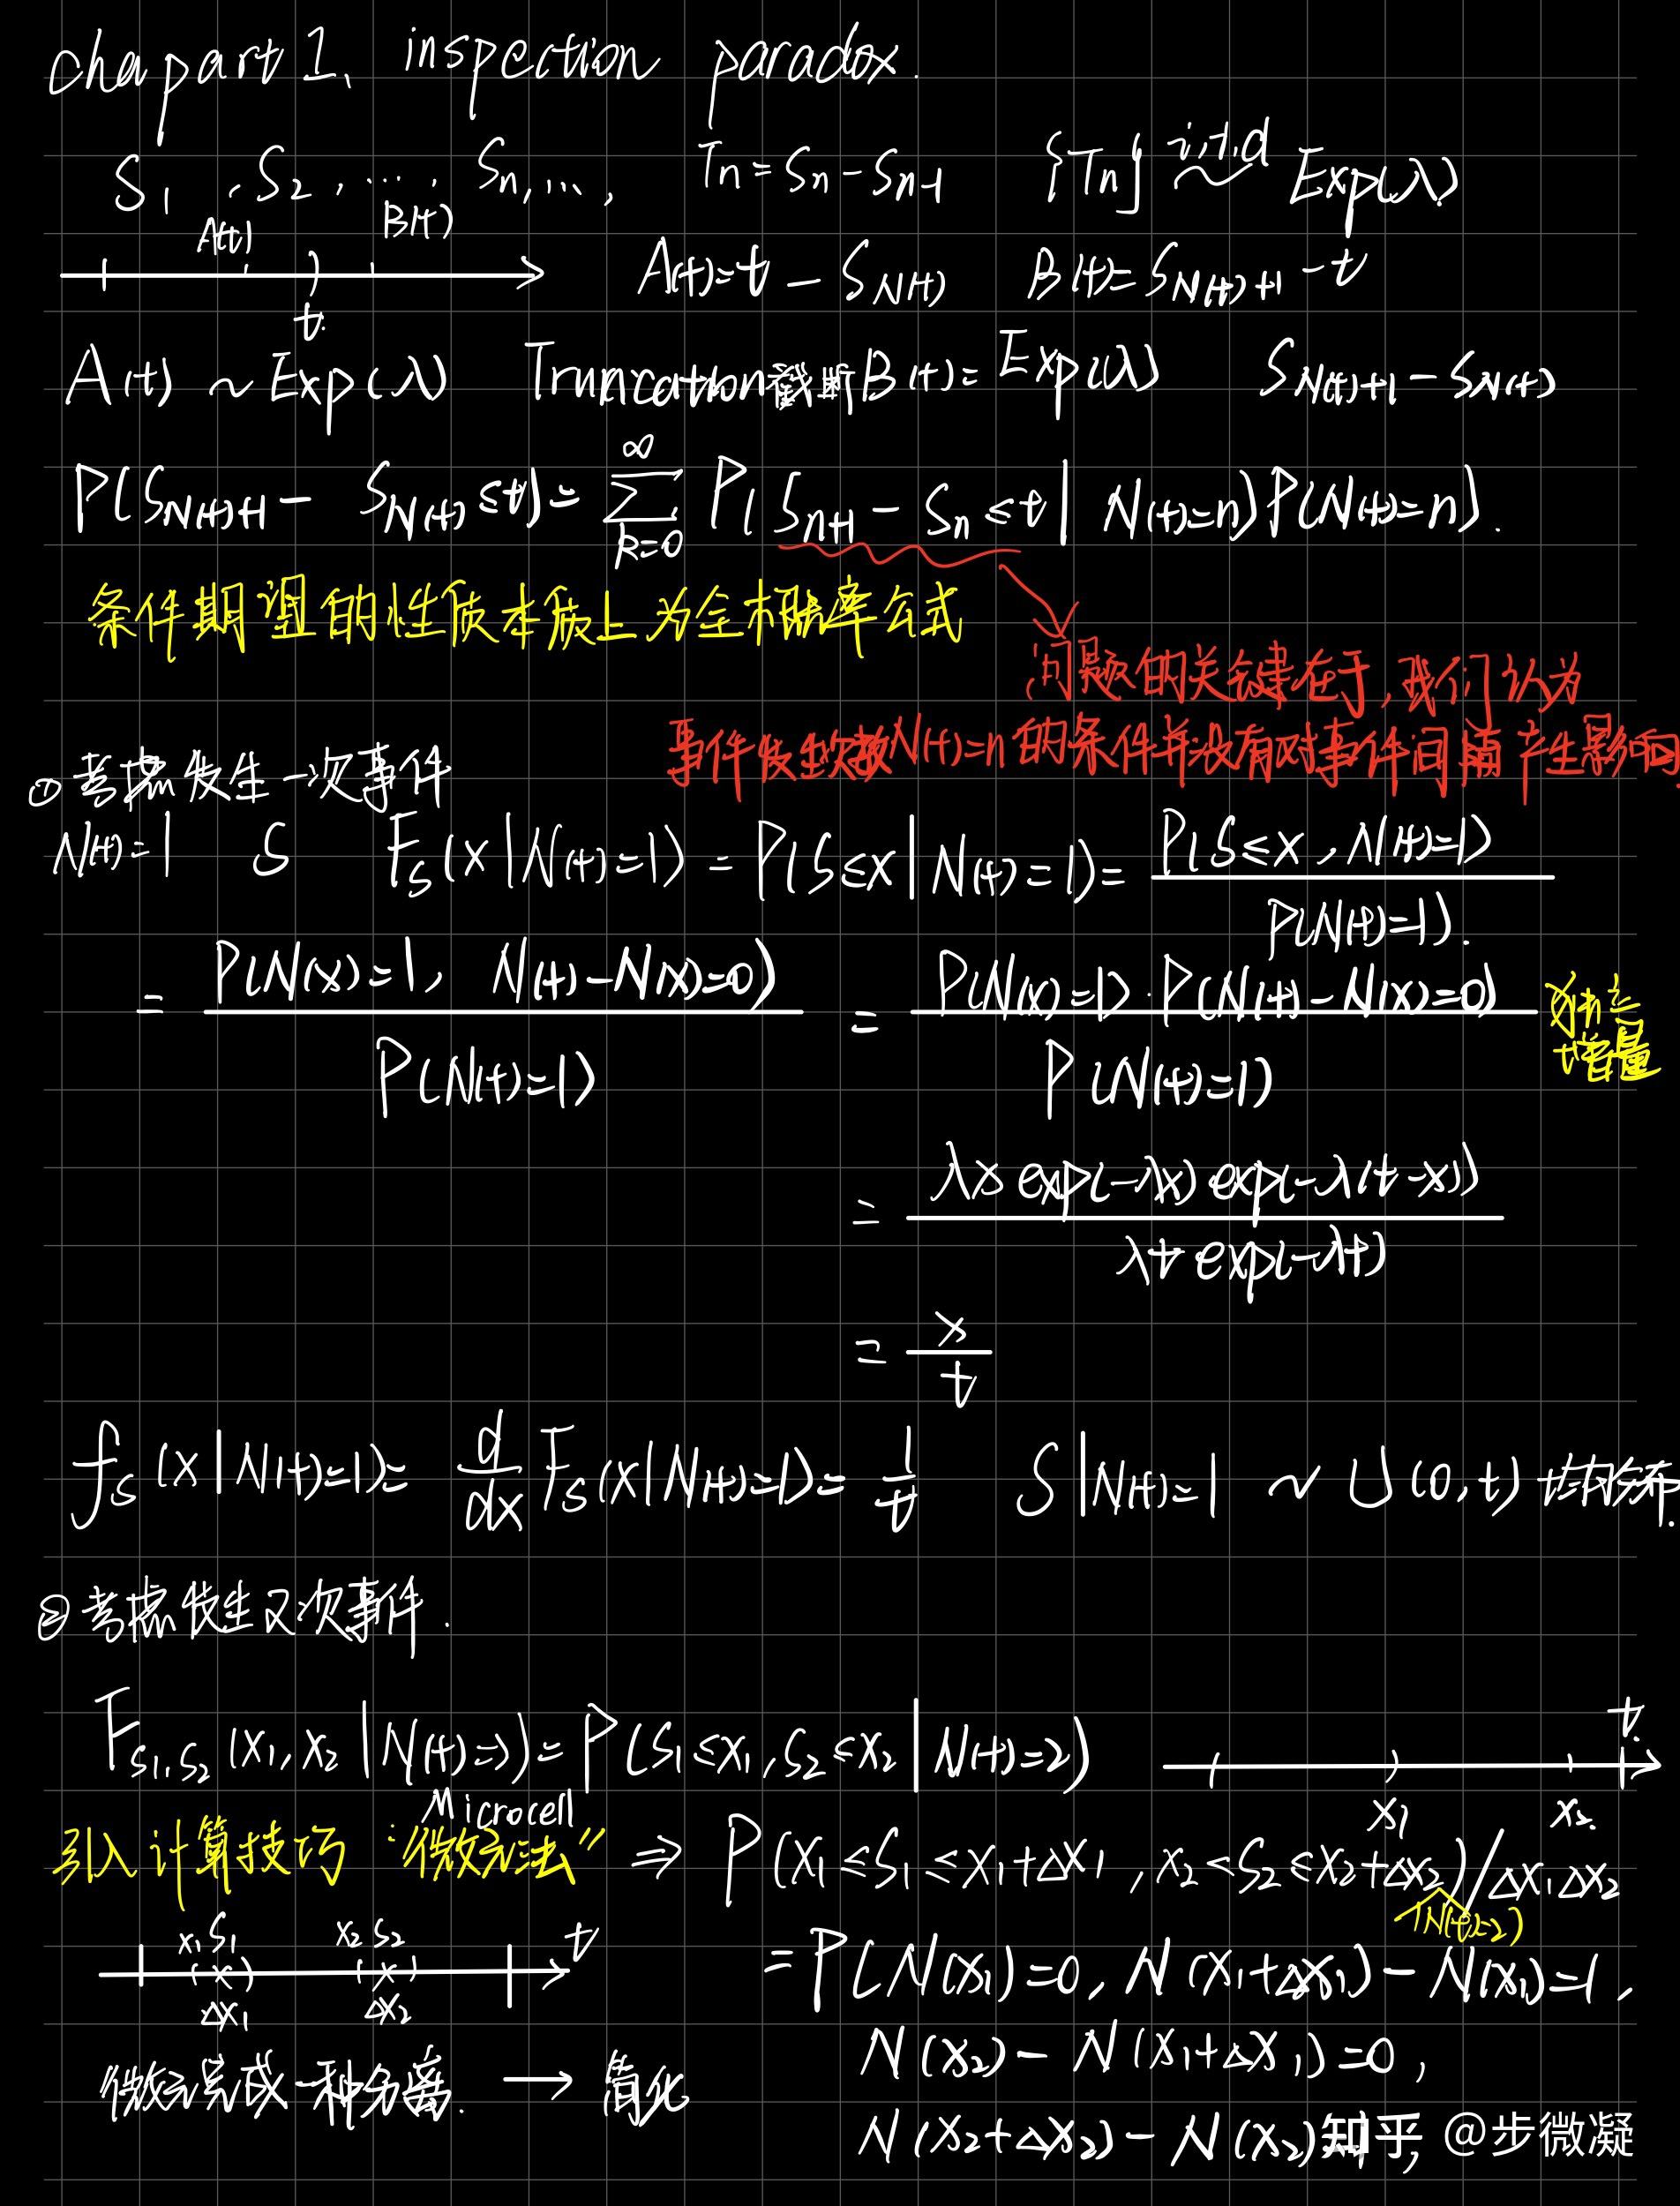 chapart 1. inspection paradox.
S1, S2, ..., Sn, ..., Tn = Sn - Sn-1 {Tn} i.i.d ~ Exp(λ)
A(t) B(t)
t. A(t) = t - SN(t) B(t) = SN(t)+1 - t
A(t) ~ Exp(λ) Truncation 截断 B(t) = Exp(λ) SN(t)+1 - SN(t)
P(SN(t)+1 - SN(t) ≤ t) = ∑k=0∞ P(Sn+1 - Sn ≤ t | N(t)=n) P(N(t)=n).
条件期望的性质本质上为全概率公式
问题的关键在于,我们认为
事件发生次数N(t)=n的条件并没有对事件间隔产生影响.
① 考虑发生一次事件
N(t)=1 S FS(x|N(t)=1) = P(S≤x|N(t)=1) = P(S≤x, N(t)=1) / P(N(t)=1).
= P(N(x)=1, N(t)-N(x)=0) / P(N(t)=1) = P(N(x)=1)·P(N(t)-N(x)=0) / P(N(t)=1) 独立增量
= λx exp(-λx) exp(-λ(t-x)) / λt exp(-λt)
= x/t
fS(x|N(t)=1) = d/dx FS(x|N(t)=1) = 1/t S|N(t)=1 ~ U(0,t) 均匀分布.
② 考虑发生2次事件.
FS1,S2(x1,x2|N(t)=2) = P(S1≤x1, S2≤x2|N(t)=2) t.
x1 x2.
Microcell
引入计算技巧 "微元法" ⇒ P(x1≤S1≤x1+Δx1, x2<S2≤x2+Δx2)/Δx1Δx2
N(t)=2)
x1 S1 x2 S2 t
Δx1 Δx2
= P(N(x1)=0, N(x1+Δx1)-N(x1)=1,
微元完成一种分离. → 简化
N(x2)-N(x1+Δx1)=0,
N(x2+Δx2)-N(x2)
知乎 @步微凝